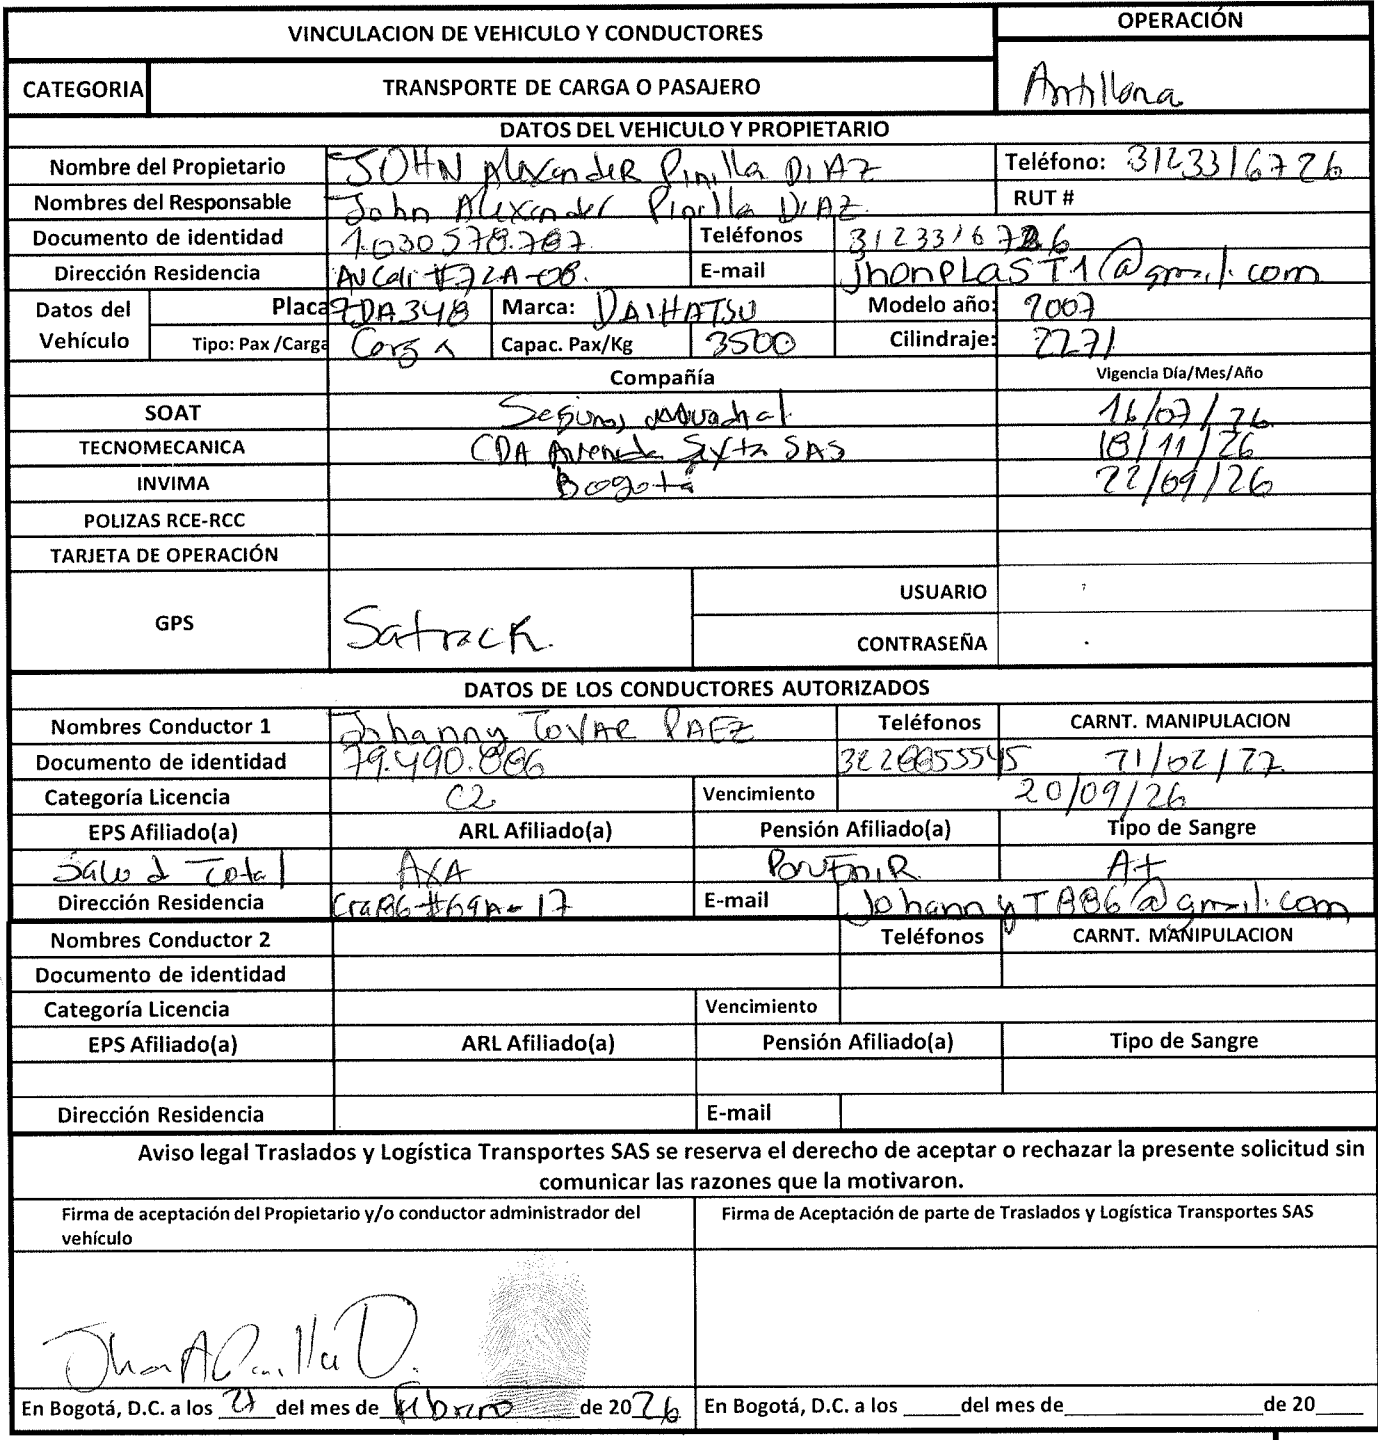 VINCULACION DE VEHICULO Y CONDUCTORES
OPERACIÓN
CATEGORIA TRANSPORTE DE CARGA O PASAJERO
Antillana
DATOS DEL VEHICULO Y PROPIETARIO
Nombre del Propietario JOHN Alexander Pinilla DIAZ Teléfono: 3123316726
Nombres del Responsable John Alexander Pinilla DIAZ RUT #
Documento de identidad 1.030578.787. Teléfonos 3123316726
Dirección Residencia AV Cali #72A-08. E-mail jhonPLAST1@gmail.com
Datos del Vehículo Placa Marca: DAIHATSU Modelo año: 2007
Tipo: Pax /Carga Carga Capac. Pax/Kg 3500 Cilindraje: 2271
Compañía Vigencia Día/Mes/Año
SOAT Seguros 16/07/26
TECNOMECANICA CDA Avenida Sexta SAS 18/11/26
INVIMA Bogotá 22/09/26
POLIZAS RCE-RCC
TARJETA DE OPERACIÓN
GPS Satrack. USUARIO
CONTRASEÑA
DATOS DE LOS CONDUCTORES AUTORIZADOS
Nombres Conductor 1 Johanny TOVAR PAEZ Teléfonos CARNT. MANIPULACION
Documento de identidad 79.490.886 3228855545 21/02/27
Categoría Licencia C2 Vencimiento 20/09/26
EPS Afiliado(a) ARL Afiliado(a) Pensión Afiliado(a) Tipo de Sangre
Salud Total AXA PorvENIR A+
Dirección Residencia Cra86#69A-17 E-mail JohannyT886@gmail.com
Nombres Conductor 2 Teléfonos CARNT. MANIPULACION
Documento de identidad
Categoría Licencia Vencimiento
EPS Afiliado(a) ARL Afiliado(a) Pensión Afiliado(a) Tipo de Sangre
Dirección Residencia E-mail
Aviso legal Traslados y Logística Transportes SAS se reserva el derecho de aceptar o rechazar la presente solicitud sin
comunicar las razones que la motivaron.
Firma de aceptación del Propietario y/o conductor administrador del
vehículo
Firma de Aceptación de parte de Traslados y Logística Transportes SAS
Jhon A Pinilla D.
En Bogotá, D.C. a los 21 del mes de Febrero de 2026
En Bogotá, D.C. a los _____ del mes de __________ de 20____